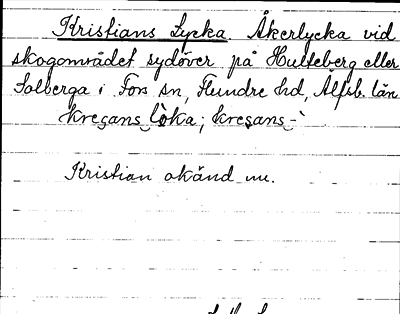 Kristians Lycka. Åkerlycka vid
skogområdet sydöver på Hulteberg eller
Solberga i Fors sn, Flundre hd, Älfsb. län
kresans lòka; kresans -̀
Kristian okänd nu.